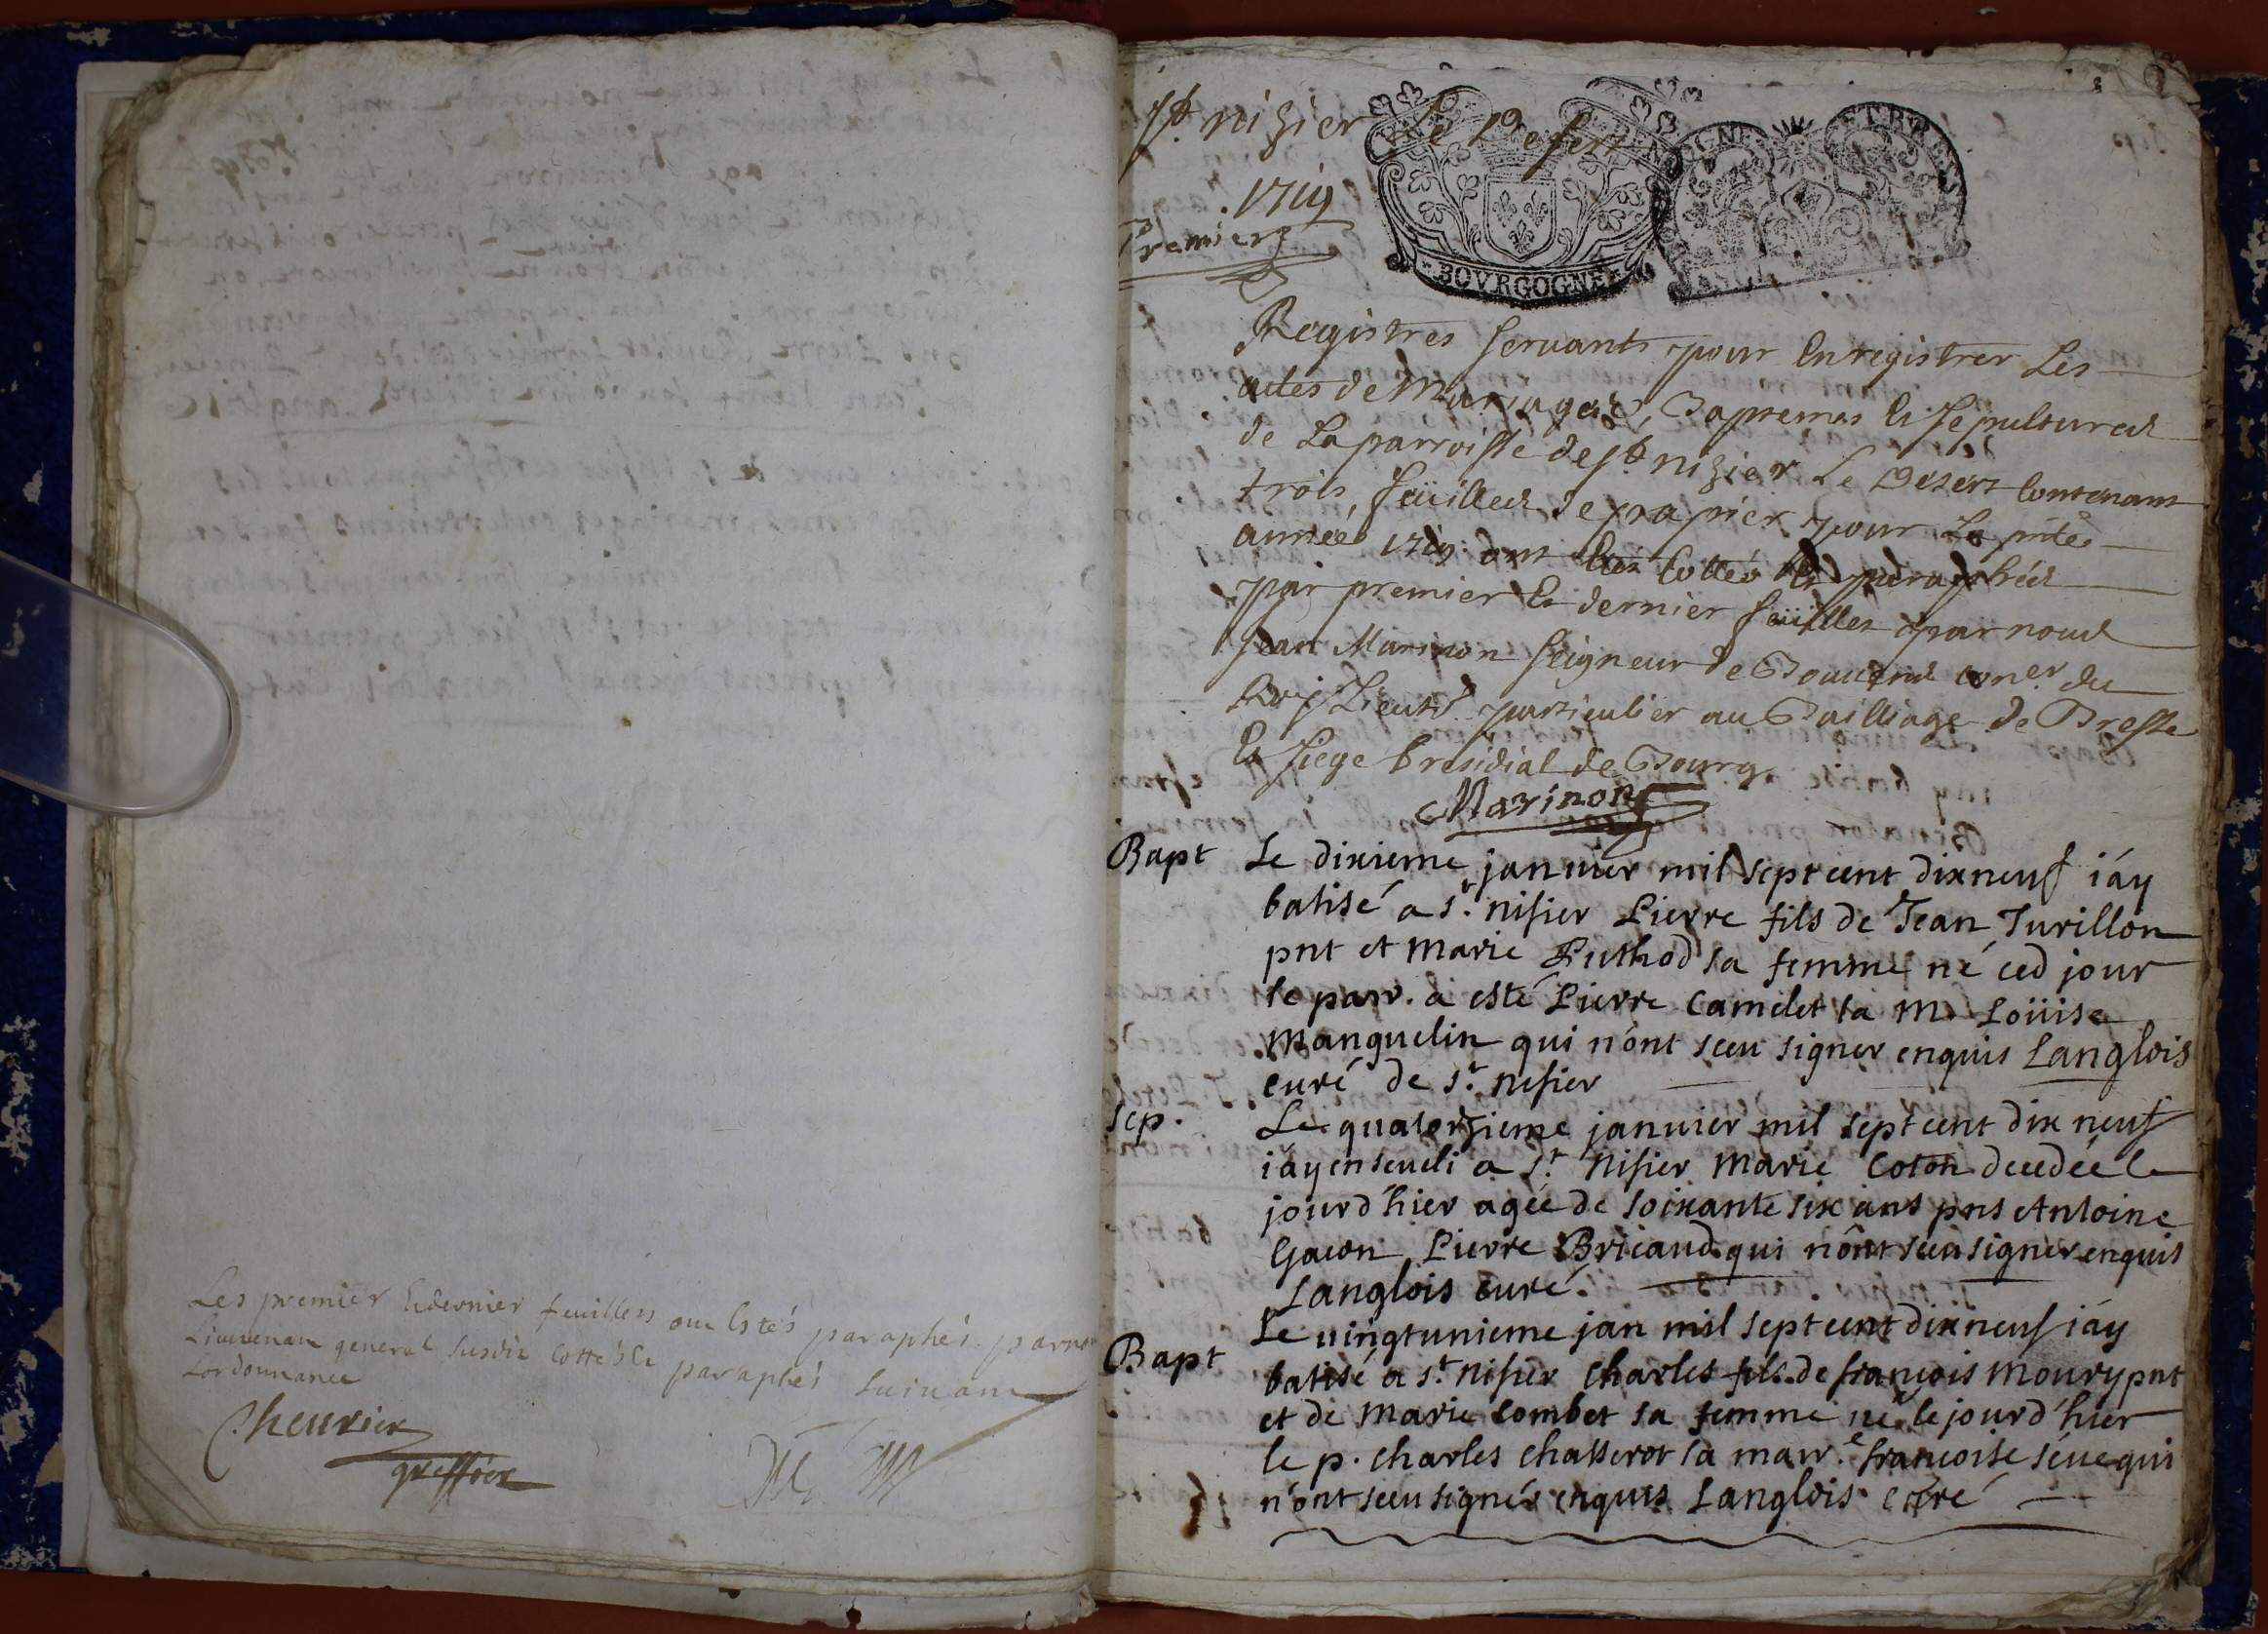 Les premier et dernier feuillets ont estés paraphés par nous
Lieutenant general susdit cottés et paraphés suivant
Lordonnance
Cheurier
greffier
St. nizier Le Desert
1719
Premier
BOVRGOGNE
Registres servants pour Enregistrer Les
actes de Mariages, Baptemes Et sepultures
de La parroisse de St. nizier Le Desert Contenant
trois feüilles de papier pour La pnte
année 1719 ont Etés Cottés Et paraphés
par premier Et dernier feüilles par nous
Jean Marinon seigneur de coner. du
Roy Lieutt. particulier au Bailliage de Bresse
Et siege Presidial de Bourg
Marinon
Bapt Le dixieme janvier mil sept cent dixneuf iáy
batisé a st. nisier Pierre fils de Jean Turillon
pnt et marie Puthod sa femme né ced jour
le parr. a esté Pierre Camelet la M. Loüise
Manguelin qui nónt sceu signer enquis Langlois
curé de st. nisier
sep. Le quatorzieme janvier mil sept cent dix neuf
iáy enseveli a st. nisier marie Coton decedée le
jourd'hier agée de soixante six ans pns Antoine
Gacon Pierre Bricaud qui nônt sceu signer enquis
Langlois curé.
Bapt Le vingtunieme jan mil sept cent dixneuf iáy
batisé a st. nisier Charles fils de françois moury pnt
et de marie Combet sa femme né le jourd'hier
le p. Charles Chasserot la marr.e françoise séve qui
n'ont sceu signér enquis Langlois curé